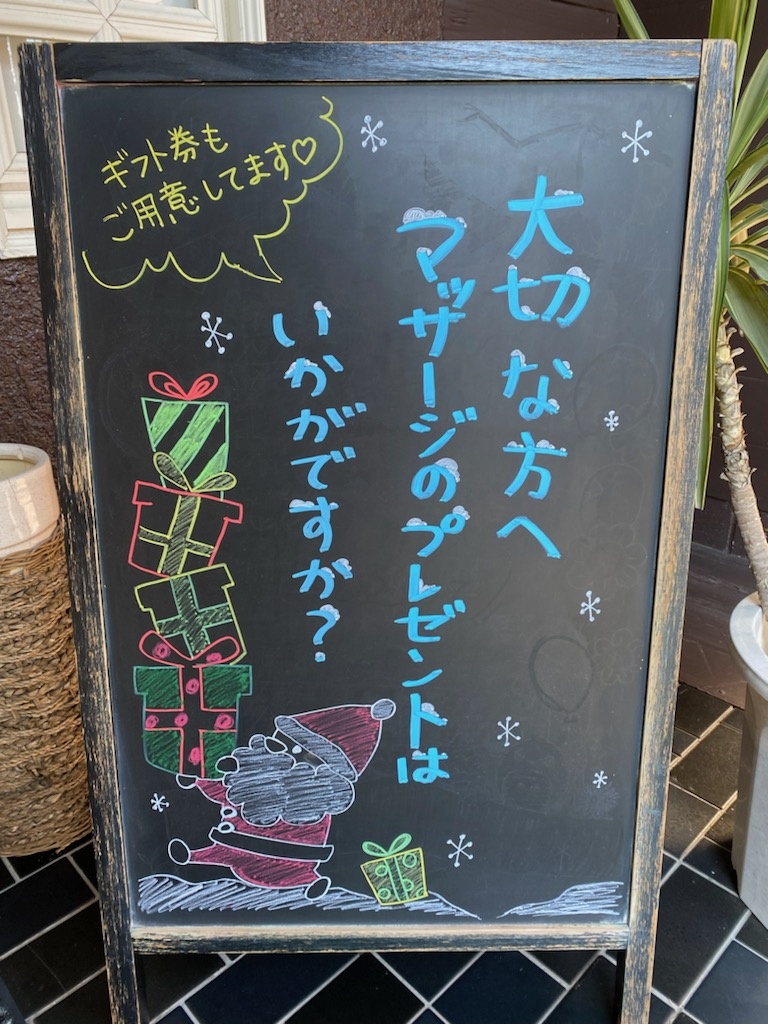 大切な方へ
マッサージのプレゼントは
いかがですか?
ギフト券も
ご用意してます♡